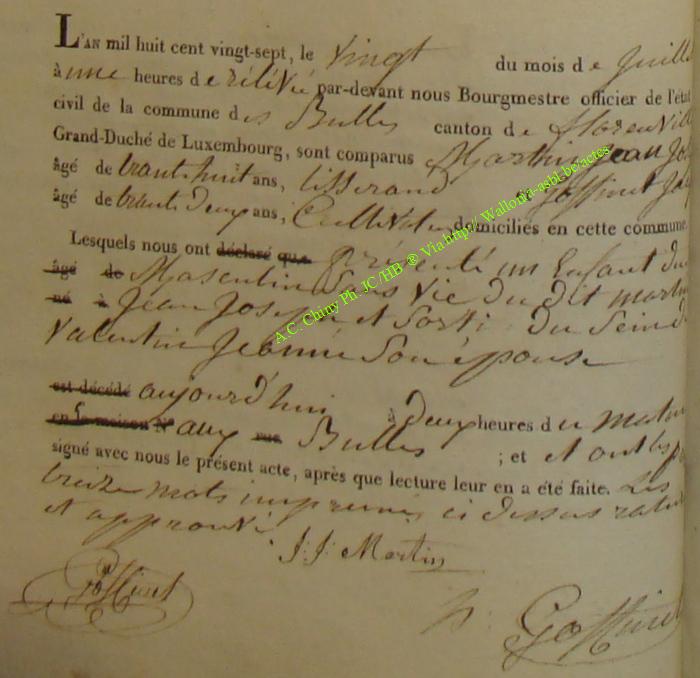 L'AN mil huit cent vingt-sept, le vingt du mois de juillet
à une heures de rélévée par-devant nous Bourgmestre officier de l'état
civil de la commune des Bulles canton de florenville
Grand-Duché de Luxembourg, sont comparus Martin jean jos
âgé de trante huit ans, tisserand et Goffinet
âgé de trante deux ans, Cultivateur domiciliés en cette commune
Lesquels nous ont déclaré que Présenté un Enfant du
âgé de Masculin Sans vie du dit martin
né à Jean Joseph et Sorti du Sein de
Valentin Jeanne Son épouse
est décédé aujourd'hui à deux heures du matin
en la maison N° aux rue Bulles ; et et ont les
signé avec nous le présent acte, après que lecture leur en a été faite. Les
treize mots imprimés ci dessus raturés
et approuvé
J. J. Martin
Goffinet
Goffinet
A.C. Chiny Ph. JC /HB ® Via http:/ Wallonia-asbl.be/actes